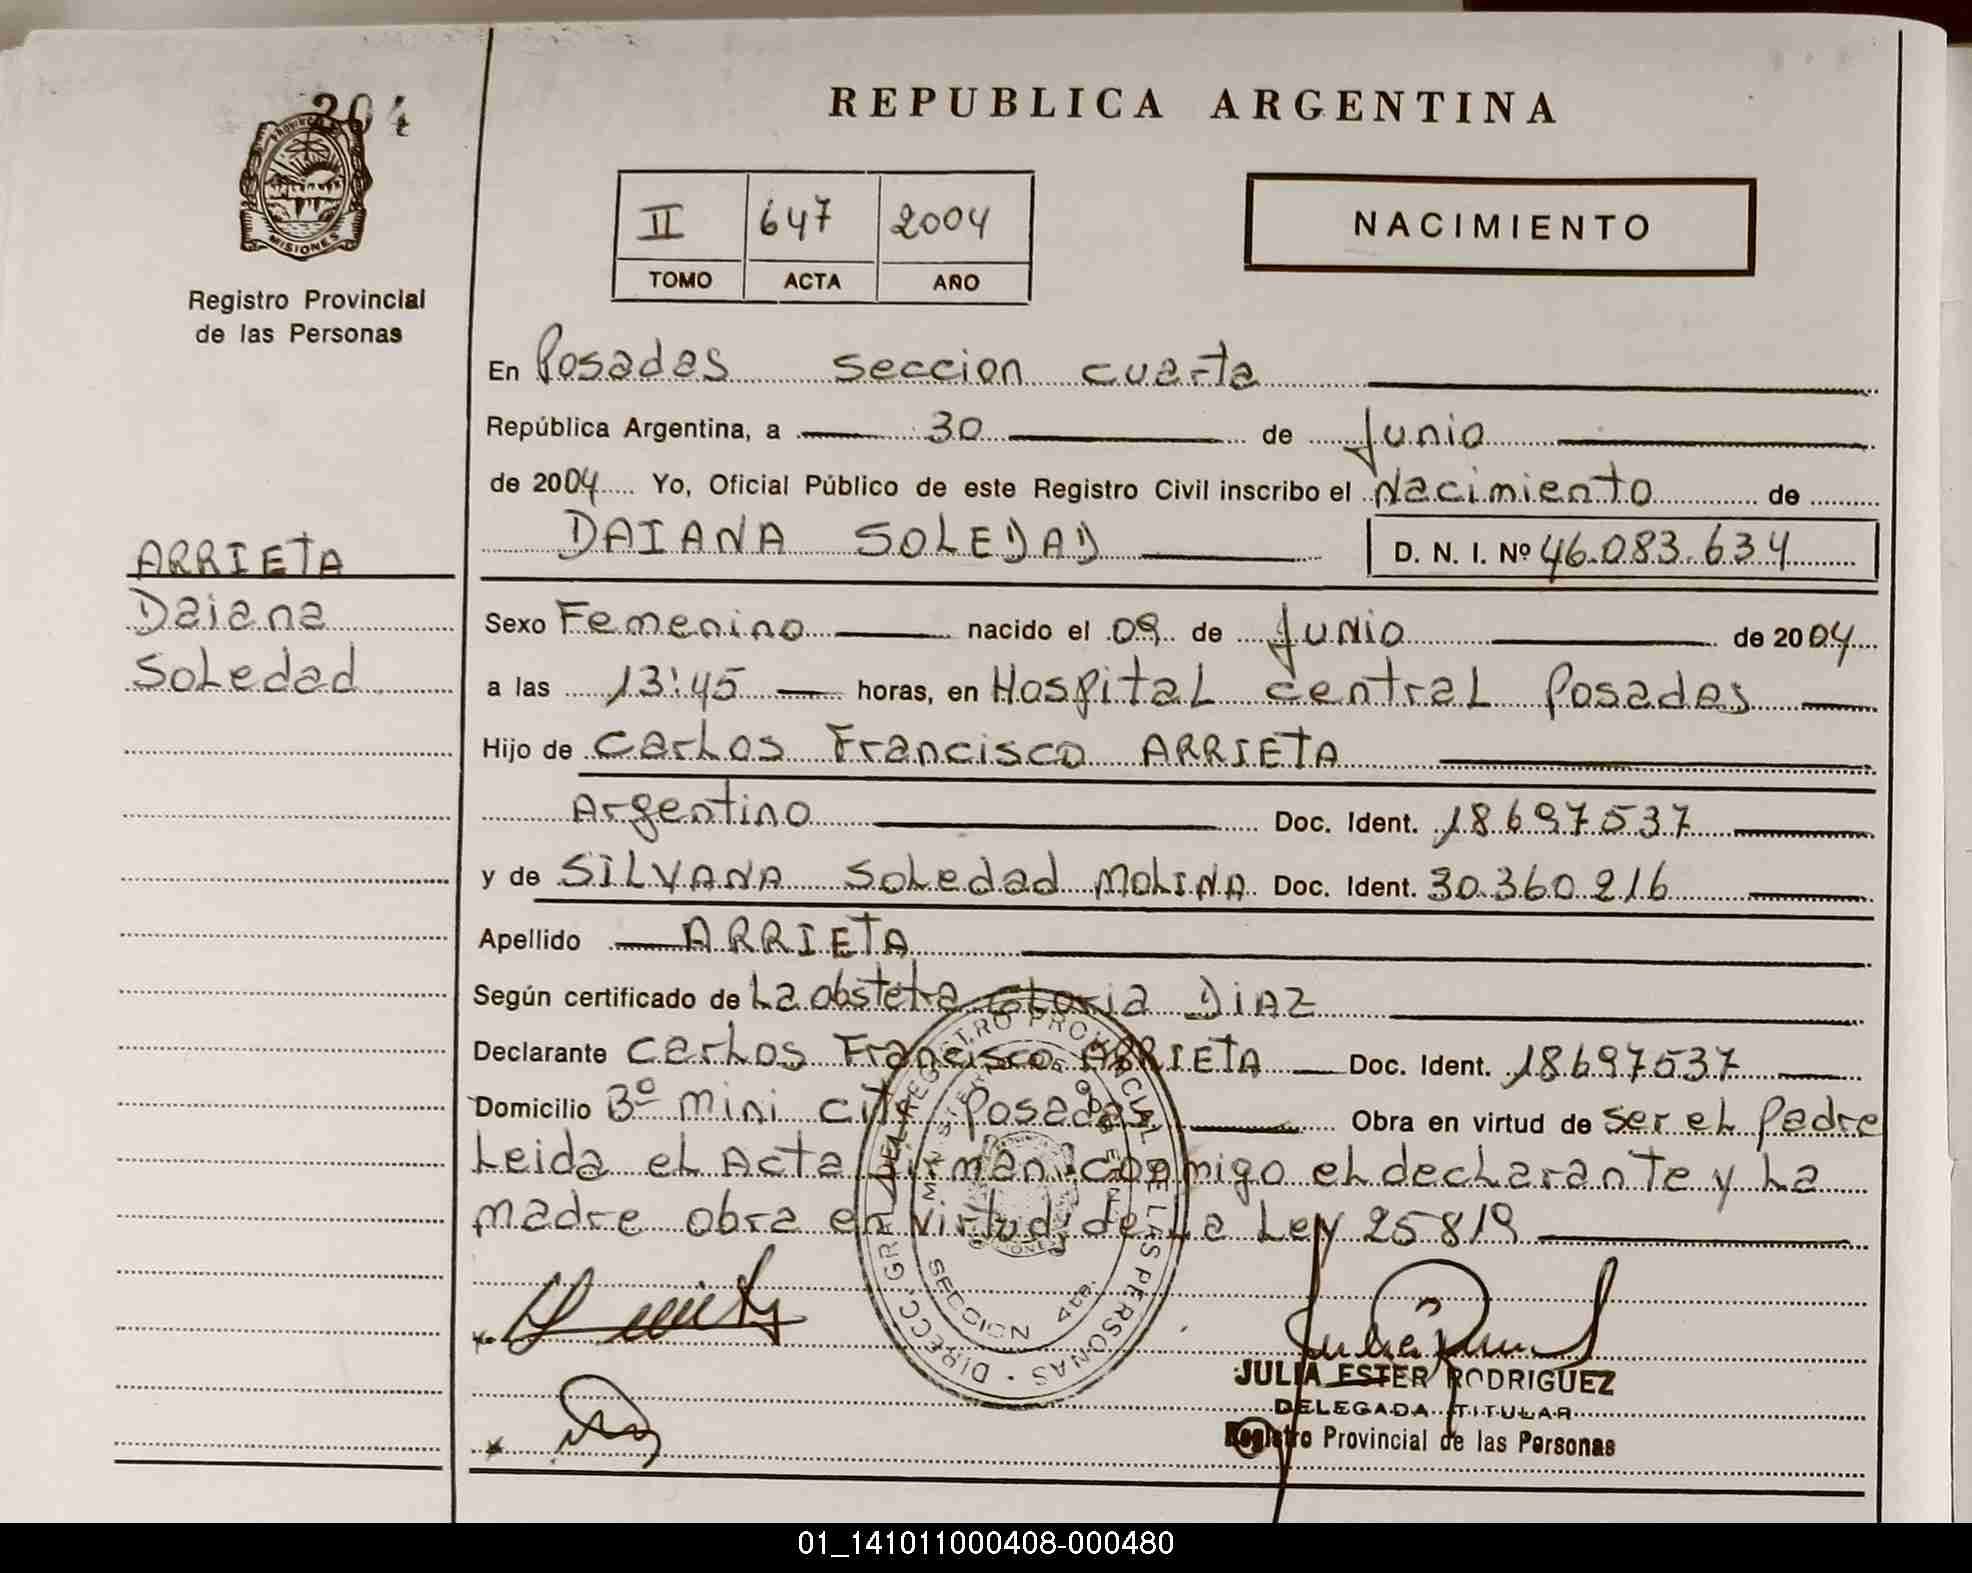 204
PROVINCIA
MISIONES
Registro Provincial
de las Personas
REPUBLICA ARGENTINA
II 647 2004
TOMO ACTA AÑO
NACIMIENTO
En Posadas seccion cuarta
República Argentina, a 30 de Junio
de 2004 Yo, Oficial Público de este Registro Civil inscribo el Nacimiento de
DAIANA SOLEDAD D. N. I. Nº 46.083.634
ARRIETA
Daiana
Soledad
Sexo Femenino nacido el 09 de Junio de 2004
a las 13:45 horas, en Hospital central Posadas
Hijo de Carlos Francisco ARRIETA
Argentino Doc. Ident. 18697537
y de SILVANA Soledad MOLINA Doc. Ident. 30.360.216
Apellido ARRIETA
Según certificado de La obstetra Gloria DIAZ
Declarante Carlos Francisco ARRIETA Doc. Ident. 18697537
Domicilio Bº mini city Posadas Obra en virtud de ser el Padre
Leida el Acta firman conmigo el declarante y La
madre obra en virtud de La Ley 25819
DIRECC. GRAL. DEL REGISTRO PROVINCIAL DE LAS PERSONAS
MINISTERIO DE GOBIERNO
SECCION 4ta.
JULIA ESTER RODRIGUEZ
DELEGADA TITULAR
Registro Provincial de las Personas
01_141011000408-000480